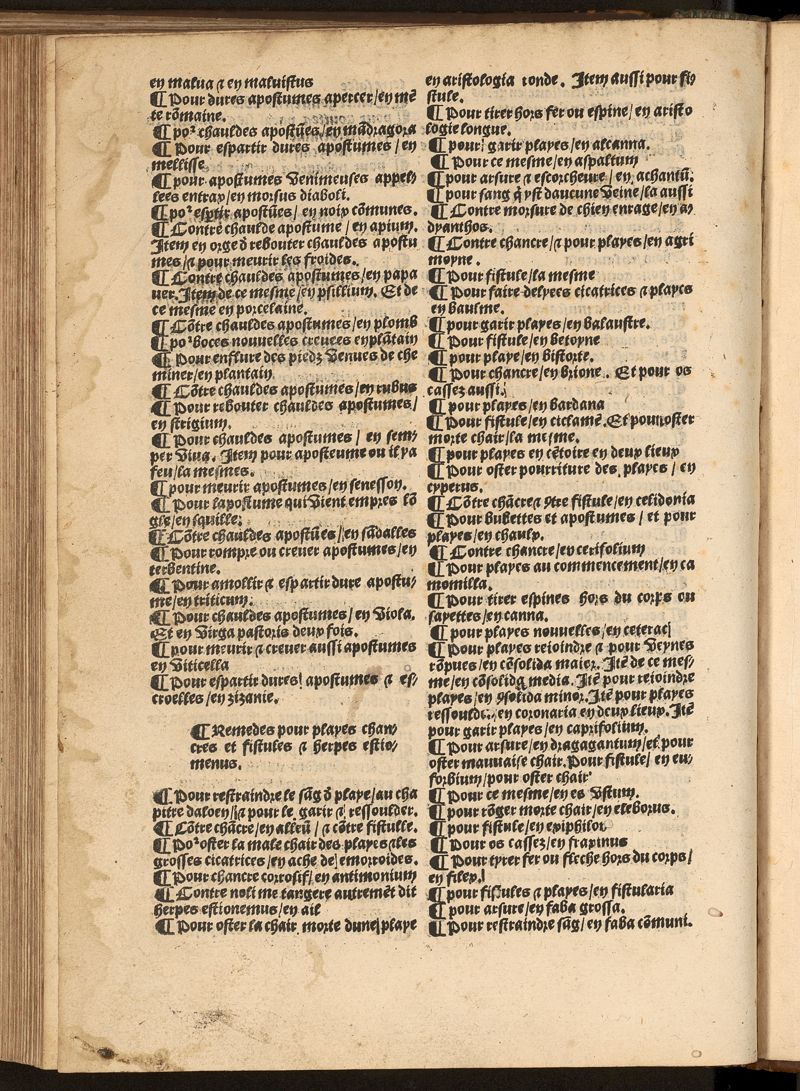 en malua ⁊ en maluistus
¶ Pour dures apostumes apercer/en mẽ
te rõmaine.
¶ poꝰ chauldes apostũes/en mãdragora
¶ Pour espartir dures apostumes / en
mellisse
¶ pour apostumes Venimeuses appel/
lees entrax/en morsus diaboli.
¶ poꝰ esptir apostũes/ en noix cõmunes.
¶ Contre chaulde apostume / en apium.
Item en orge õ rebouter chauldes apostu
mes/⁊ pour meurir les froides.
¶ Contre chauldes apostumes/en papa
uer. Item de ce mesme/en psillium. Et de
ce mesme en porcelaine.
¶ Cõtre chauldes apostumes/en plomb
¶ poꝰ boces nouuelles creuees en plãtain
¶ Pour enflure des piedz Venues de che
miner/en plantain
¶ Cõtre chauldes apostumes/en rubus
¶ Pour rebouter chauldes apostumes/
en strigium.
¶ Pour chauldes apostumes / en sem/
per Viua. Item pour aposteume ou il ya
feu/la mesmes.
¶ pour meurir apostumes/en senesson.
¶ Pour lapostume qui Vient empres lõ
gle/en squille.
¶ Cõtre chauldes apostũes /en sãdalles
¶ Pour rompre ou creuer apostumes/en
terbentine.
¶ Pour amollir ⁊ espartir dure apostu/
me/en triticum.
¶ Pour chauldes apostumes/ en Viola.
Et en Virga pastoris deux fois.
¶ pour meurir ⁊ creuer aussi apostumes
en Viticella
¶ Pour espartir dures apostumes ⁊ es/
croelles/en zizanie.
¶ Remedes pour playes chan/
cres et fistules ⁊ herpes estio/
menus.
¶ Pour restraindre le sãg õ playe/au cha
pitre daloen/⁊ pour le garir ⁊ ressoulder.
¶ Cõtre chãcre/en alleũ / ⁊ cõtre fistulle.
¶ Poꝰ oster la male chair des playes ⁊ les
grosses cicatrices/en ache de emorroides.
¶ Pour chancre corrosif/en antimonium
¶ Contre noli me tangere autremẽt dit
herpes estionemus/en ail
¶ Pour oster la chair morte dune playe
en aristologia ronde. Item aussi pour fi/
stule.
¶ Pour tirer hors fer ou espine/en aristo
logie longue.
¶ pour garir playes/en alcanna.
¶ Pour ce mesme/en aspaltum
¶ pour arsure ⁊ escorcheure/en achantũ.
¶ pour sang q̃ yst daucune Veine/la aussi
¶ Contre morsure de chien enrage/en a/
dyanthos.
¶ Contre chancre/⁊ pour playes/en agri
moyne.
¶ Pour fistule/la mesme
¶ Pour faire delyees cicatrices ⁊ playes
en baulme.
¶ pour garir playes/en balaustre.
¶ Pour fistule/en betoyne
¶ pour playe/en bistorte.
¶ Pour chancre/en brione. Et pour os
cassez aussi.
¶ pour playes/en bardana
¶ Pour fistule/en ciclamẽ. Et pour oster
morte chair/la mesme.
¶ pour playes en cẽtoire en deux lieux
¶ Pour oster pourriture des playes / en
cyperus.
¶ Cõtre chãcre⁊ ꝯtre fistule/en celidonia
¶ Pour bubettes et apostumes / et pour
playes/en chaulx.
¶ Contre chancre/en cerifolium
¶ Pour playes au commencement/en ca
momilla.
¶ Pour tirer espines hors du corps ou
sayettes/en canna.
¶ pour playes nouuelles/en ceterac
¶ Pour playes reioindre ⁊ pour Veynes
rõpues/en cõsolida maior. Itẽ de ce mes/
me/en cõsolida media. Itẽ pour reioindre
playes/en ꝯsolida minor. Itẽ pour playes
ressoulder/en coronaria en deux lieux. Itẽ
pour garir playes/en caprifolium.
¶ Pour arsure/en dragagantum/et pour
oster mauuaise chair. Pour fistule/ en eu/
forbium/pour oster chair
¶ Pour ce mesme/en es Vstum.
¶ pour rõger morte chair/en eleborus.
¶ pour fistule/en epiphilot
¶ Pour os cassez/en fraxinus
¶ Pour tyrer fer ou fleche hors du corps/
en filex.
¶ pour fistules ⁊ playes/en fistularia
¶ pour arsure/en faba grossa.
¶ Pour restraindre sãg/ en faba cõmuni.